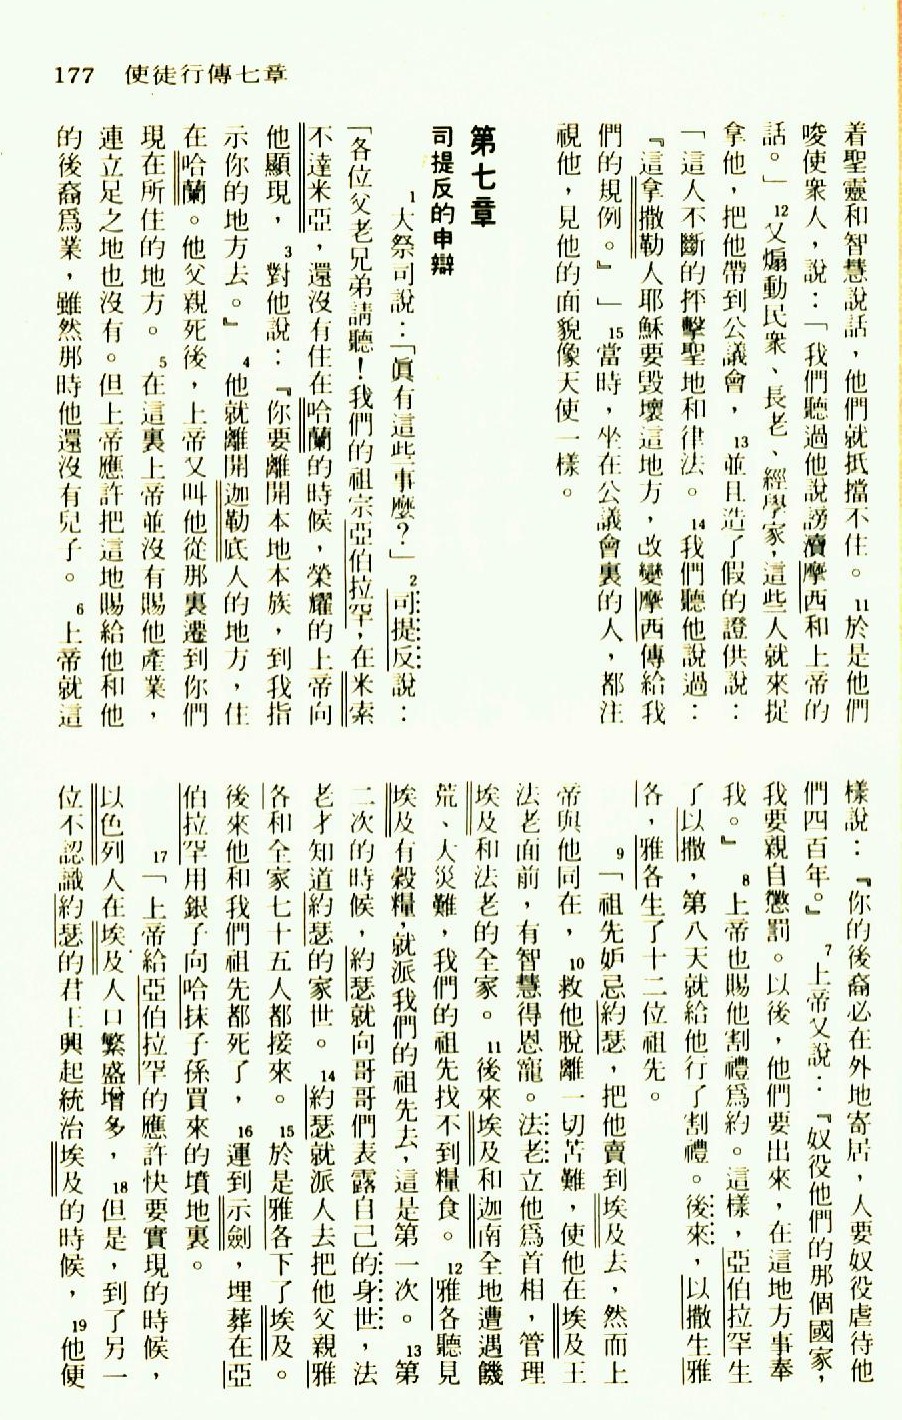 177　使徒行傳七章
着聖靈和智慧說話，他們就抵擋不住。11於是他們
唆使衆人，說：「我們聽過他說謗瀆摩西和上帝的
話。」12又煽動民衆、長老、經學家，這些人就來捉
拿他，把他帶到公議會，13並且造了假的證供說：
「這人不斷的抨擊聖地和律法。14我們聽他說過：
『這拿撒勒人耶穌要毀壞這地方，改變摩西傳給我
們的規例。』」15當時，坐在公議會裏的人，都注
視他，見他的面貌像天使一樣。
第七章
司提反的申辯
1大祭司說：「眞有這些事麼？」2司提反說：
「各位父老兄弟請聽！我們的祖宗亞伯拉罕，在米索
不達米亞，還沒有住在哈蘭的時候，榮耀的上帝向
他顯現，3對他說：『你要離開本地本族，到我指
示你的地方去。』4他就離開迦勒底人的地方，住
在哈蘭。他父親死後，上帝又叫他從那裏遷到你們
現在所住的地方。5在這裏上帝並沒有賜他產業，
連立足之地也沒有。但上帝應許把這地賜給他和他
的後裔爲業，雖然那時他還沒有兒子。6上帝就這
樣說：『你的後裔必在外地寄居，人要奴役虐待他
們四百年。』7上帝又說：『奴役他們的那個國家，
我要親自懲罰。以後，他們要出來，在這地方事奉
我。』8上帝也賜他割禮爲約。這樣，亞伯拉罕生
了以撒，第八天就給他行了割禮。後來，以撒生雅
各，雅各生了十二位祖先。
9「祖先妒忌約瑟，把他賣到埃及去，然而上
帝與他同在，10救他脫離一切苦難，使他在埃及王
法老面前，有智慧得恩寵。法老立他爲首相，管理
埃及和法老的全家。11後來埃及和迦南全地遭遇饑
荒、大災難，我們的祖先找不到糧食。12雅各聽見
埃及有穀糧，就派我們的祖先去，這是第一次。13第
二次的時候，約瑟就向哥哥們表露自己的身世，法
老才知道約瑟的家世。14約瑟就派人去把他父親雅
各和全家七十五人都接來。15於是雅各下了埃及。
後來他和我們祖先都死了，16運到示劍，埋葬在亞
伯拉罕用銀子向哈抹子係買來的墳地裏。
17「上帝給亞伯拉罕的應許快要實現的時候，
以色列人在埃及人口繁盛增多，18但是，到了另一
位不認識約瑟的君王興起統治埃及的時候，19他便